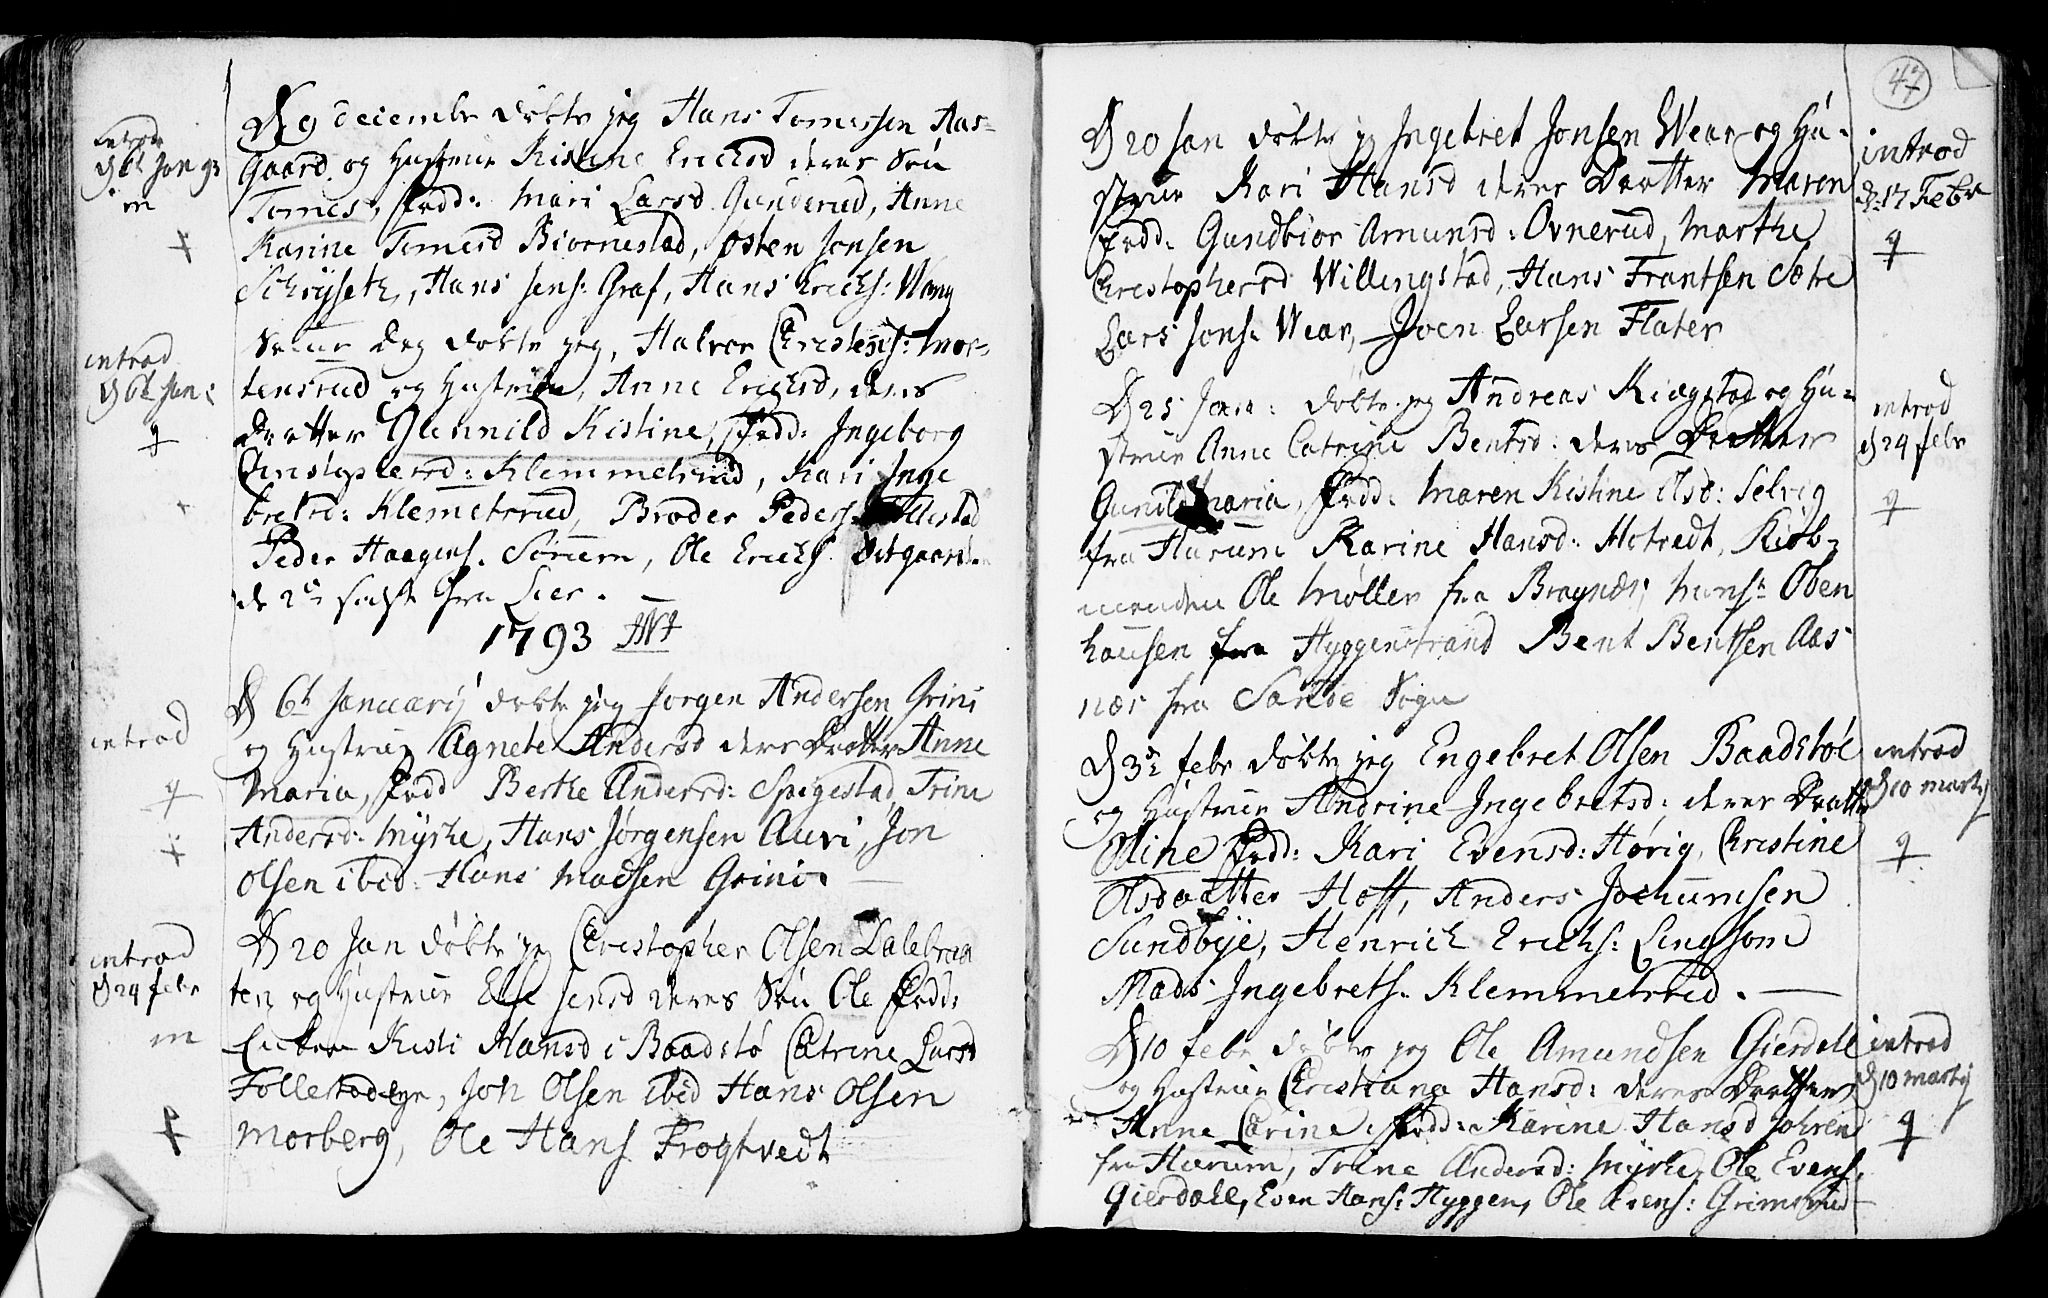 introd
D 6t Jan 93
m
D 9 December døbte jeg Hans Tomessen Aas-
gaard og Hustrue Kistine Ericksd deres Søn
Tomes, Fadd: Mari Larsd Gunderud, Anne
Karine Tomesd Biørnestad, Østen Jonsen
Schrÿseth, Hans Jens: Graf, Hans Erichs: Wang
introd
D 6t Jan:
Samme Dag døbte jeg, Halvor Christens: Mor-
tensrud og Hustrue, Anne Ericksd, deres
Daatter Gunnild Kistine, Fadd: Ingeborg
Christophersd: Klemmetsrud, Kari Inge
bretsd: Klemetsrud, Brode Peders: Follestad
Peder Haagens. Sørum, Ole Erichs.
de 2de sidste fra Lier.
1793
introd
D 6t Januarij døbte jeg Jørgen Andersen Grini
og Hustrue Agnete Andersd deres Daatter Anne
Maria, Fadd Berthe Andersd: Spigestad, Trine
Andersd: Myhre, Hans Jørgensen Auvi, Jon
Olsen ibid: Hans Madsen Grini.
introd
D 24 febr
m
D 20 Jan døbte jeg Christopher Olsen Lalebraa
ten og Hustrue Else Jensd deres Søn Ole Fadd:
Kisti Hansd i Baadstø Catrine Larsd
Follestadeye, Joh Olsen ibid Hans Olsen
Morberg, Ole Hans Frogtvedt
47
introd
D: 17 Febr
D 20 Jan døbte jeg Ingebret Jonsen Wear og Hu-
strue Kari Hansd deres Daatter Maren
Fadd: Gundbior Amunsd: Ovnerud, Marthe
Christophersd Willingstad, Hans Frantsen Sætre
Lars Jons: Wear, Joen Larsen Flater
introd
D 24 febr
D 25 Jan: døbte jeg Andreas Kiægstad og Hu-
strue Anne Catrine Bentsd: deres Daatter
Gunild Maria, Fadd: Maren Kistine Olsd: Selvig
fra Hurum Karine Hansd: Hotvedt, Kiøb-
manden Ole Møller fra Bragnæs, Mons: Oben
hausen fra Hyggenstrand Bent Bentsen Aas
næs fra Sande Sogn
introd
D 10 martij
D 3de febr døbte jeg Engebret Olsen Baadstøe
og Hustrue Andrine Ingebretsd: deres Daatter
Oline Fadd: Kari Evensd: Hørig, Christine
Olsdaatter Hoff, Anders Jochumsen
Sundbye, Henrich Erichs: Lingsom
Mads Ingebrets. Klemmetsrud.
introd
D 10 martij
D 10 febr døbte jeg Ole Amundsen Gierdale
og Hustrue Christiana Hansd: deres Daatter
Anne Carine, Fadd: Karine Hansd
fra Hurum, Trine Andersd: Myhre, Ole Evens.
Gierdale, Even Hans: Hyggen, Ole Evens: Grimsrud